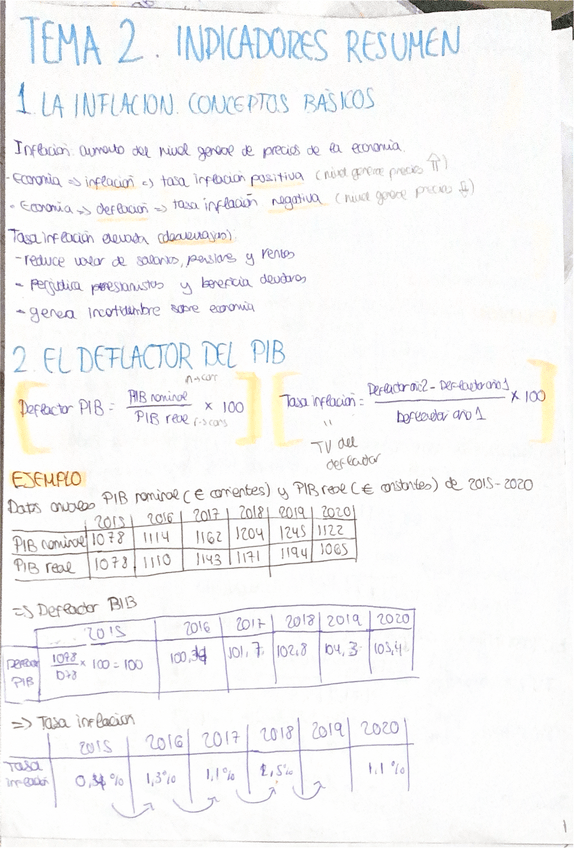 TEMA 2. INDICADORES RESUMEN
1. LA INFLACION. CONCEPTOS BÁSICOS
Inflacion: aumento del nivel general de precios de la economia.
- Economia => inflacion => tasa inflacion positiva (nivel general precios ⇑)
- Economia => deflacion => tasa inflación negativa (nivel general precios ⇓)
Tasa inflacion elevada (desventajas):
- reduce valor de salarios, pensiones y rentas
- perjudica prestamistas y beneficia deudores
- genera incertidumbre sobre economia
2. EL DEFLACTOR DEL PIB
Deflactor PIB = PIB nominal / PIB real × 100
Tasa inflacion = Deflactor año 2 - Deflactor año 1 / Deflactor año 1 × 100
"
TV del deflactor
EJEMPLO
Datos anuales PIB nominal (€ corrientes) y PIB real (€ constantes) de 2015-2020
2015 2016 2017 2018 2019 2020
PIB nominal 1078 1114 1162 1204 1245 1122
PIB real 1078 1110 1143 1171 1194 1065
=> Deflactor PIB
2015 2016 2017 2018 2019 2020
Deflactor PIB 1078 / 1078 × 100 = 100 101,7 102,8 104,3
=> Tasa inflacion
2015 2016 2017 2018 2019 2020
Tasa inflacion 1,3% 1,1% 1,1%
1